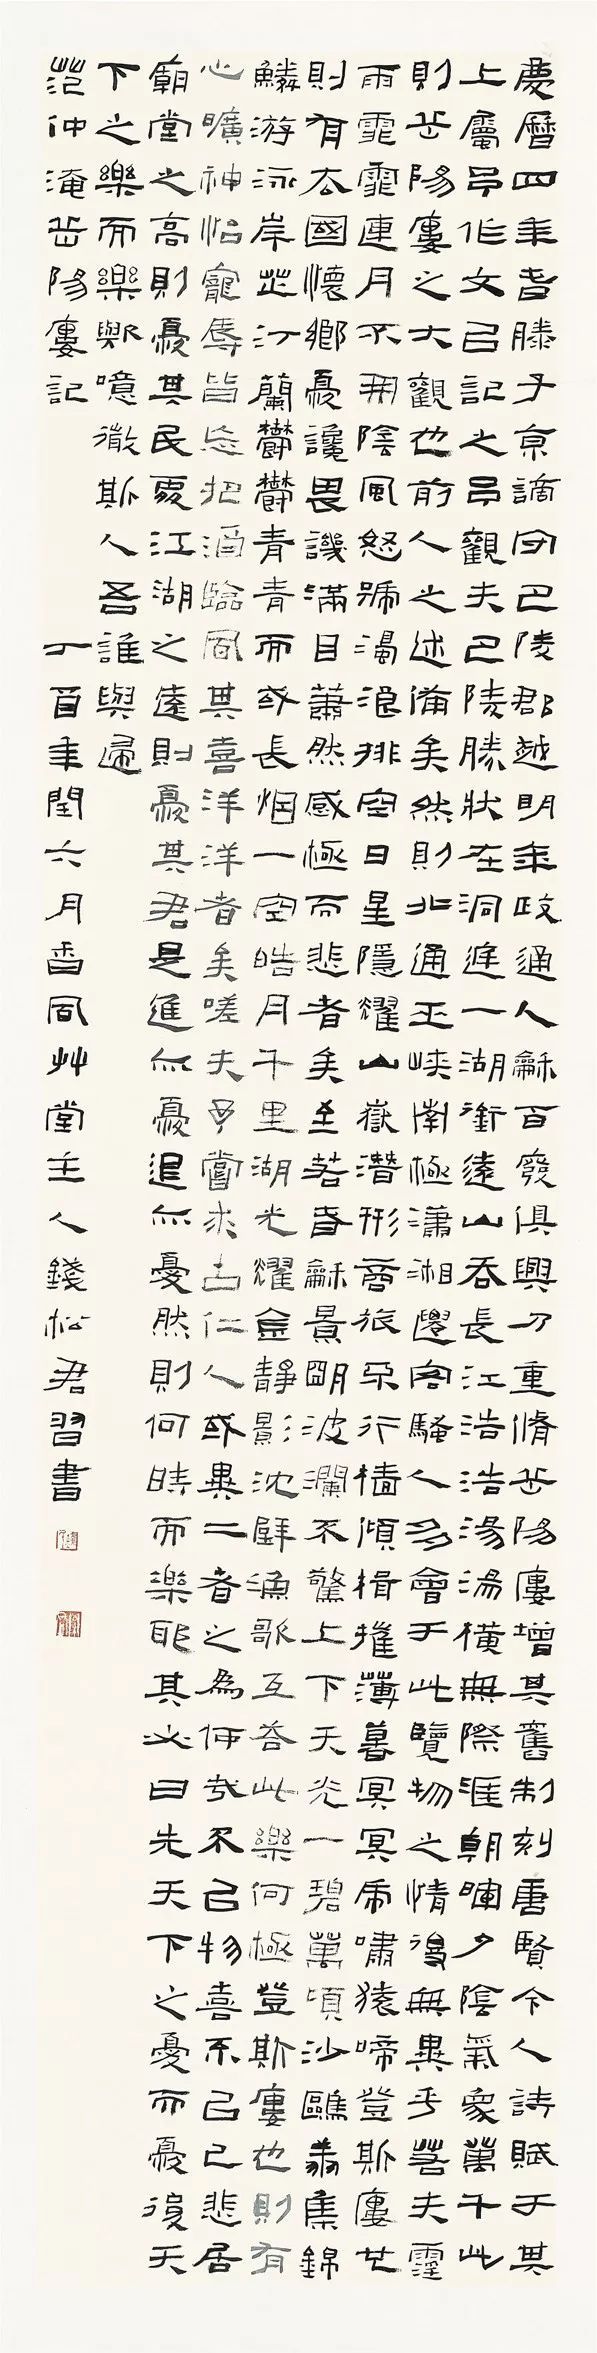 慶曆四年春滕子京謫守巴陵郡越明年政通人龢百廢俱興乃重脩岳陽樓增其舊制刻唐賢今人詩賦于其
上屬予作文以記之予觀夫巴陵勝狀在洞庭一湖銜遠山吞長江浩浩湯湯橫無際涯朝暉夕陰氣象萬千此
則岳陽樓之大觀也前人之述備矣然則北通巫峽南極瀟湘遷客騷人多會于此覽物之情得無異乎若夫霪
雨霏霏連月不開陰風怒號濁浪排空日星隱耀山嶽潛形商旅不行檣傾楫摧薄暮冥冥虎嘯猿啼登斯樓也
則有去國懷鄉憂讒畏譏滿目蕭然感極而悲者矣至若春龢景明波瀾不驚上下天光一碧萬頃沙鷗翔集錦
鱗游泳岸芷汀蘭鬱鬱青青而或長烟一空皓月千里湖光耀金靜影沈璧漁歌互答此樂何極登斯樓也則有
心曠神怡寵辱皆忘把酒臨風其喜洋洋者矣嗟夫予嘗求古仁人或異二者之為何哉不以物喜不以己悲居
廟堂之高則憂其民處江湖之遠則憂其君是進亦憂退亦憂然則何時而樂耶其必曰先天下之憂而憂後天
下之樂而樂歟噫微斯人吾誰與歸
范仲淹岳陽樓記
丁酉年閏六月香風艸堂主人錢松君習書